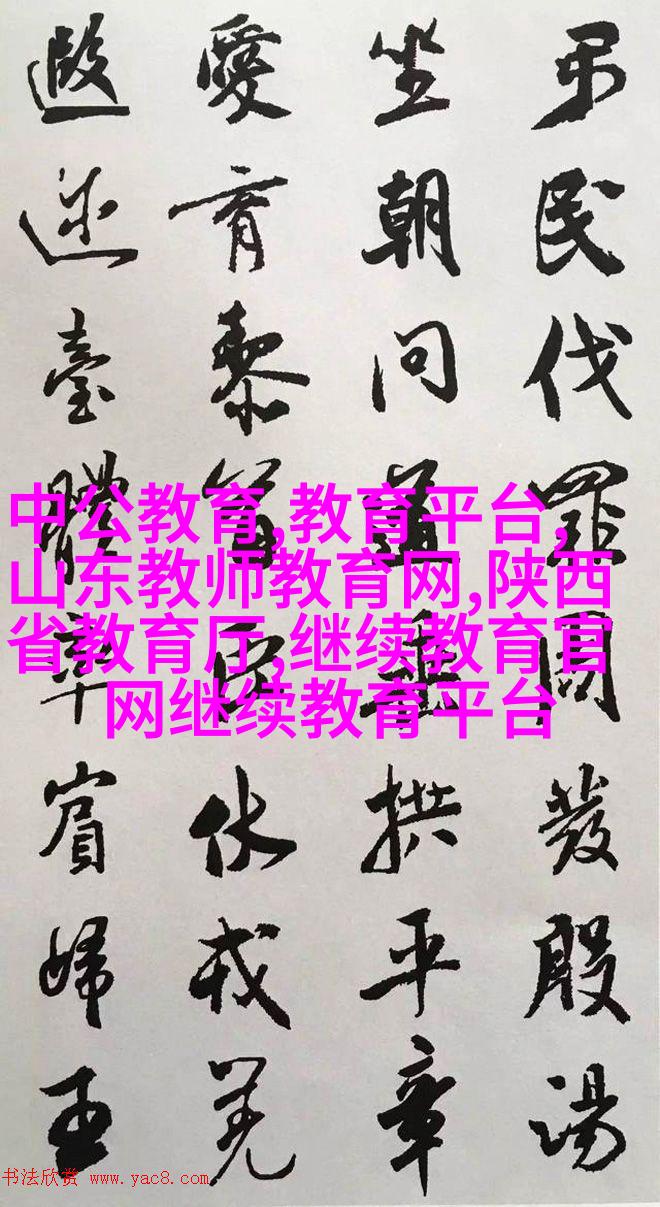 弔民伐罪周發殷湯
坐朝問道垂拱平章
愛育黎首臣伏戎羌
遐迩壹體率賓歸王
中公教育,教育平台,
山东教师教育网,陕西
省教育厅,继续教育官
网继续教育平台
书法欣赏 www.yac8.com